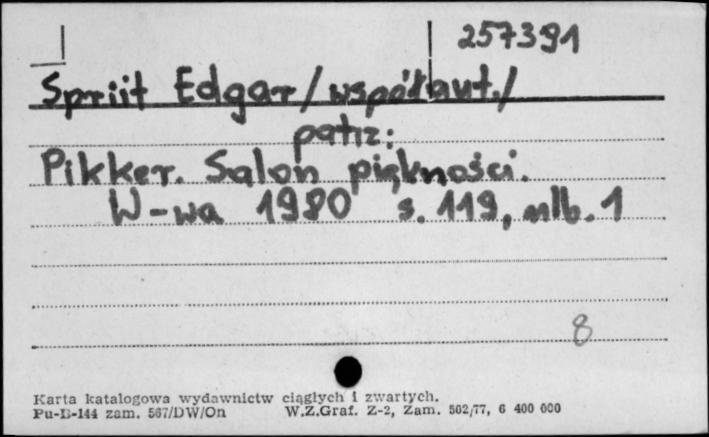 257391
Spriit Edgar /współaut./
patrz:
Pikker. Salon piękności.
W-wa 1980 s. 119, nlb. 1
8
Karta katalogowa wydawnictw ciągłych i zwartych.
Pu-B-144 zam. 567/DW/On W.Z.Graf. Z-2, Zam. 502/77, 6 400 000